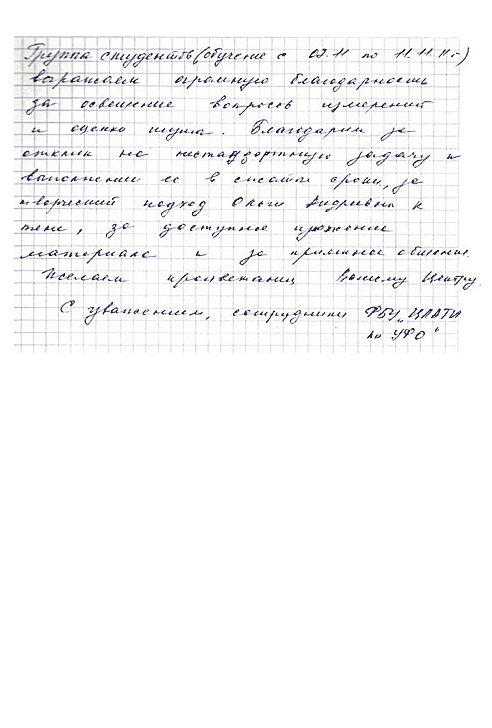 Группа студентов (обучение с 07.11 по 11.11.11г.)
выражаем огромную благодарность
за освещение вопросов измерений
и оценки шума. Благодарим за
отклик на нестандартную задачу и
выполнении ее в сжатые сроки, за
творческий подход Ольги Андреевны к
теме, за доступное изложение
материала и за приятное общение.
Желаем процветания Вашему Центру.
С уважением, сотрудники ФБУ „ЦЛАТИ
по УФО"